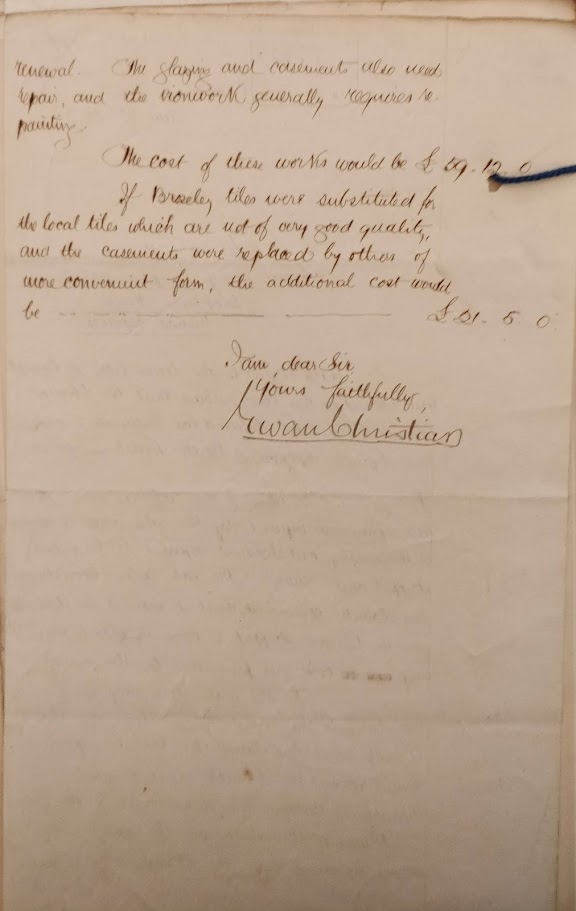 renewal. The glazing and casements also need
repair, and the ironwork generally requires re
painting.
The cost of these works would be £ 59. 12. 0
If Broseley tiles were substituted for
the local tiles which are not of very good quality,
and the casements were replaced by others of
more convenient form, the additional cost would
be £ 21. 5. 0
I am, dear Sir,
Yours faithfully,
Ewan Christian